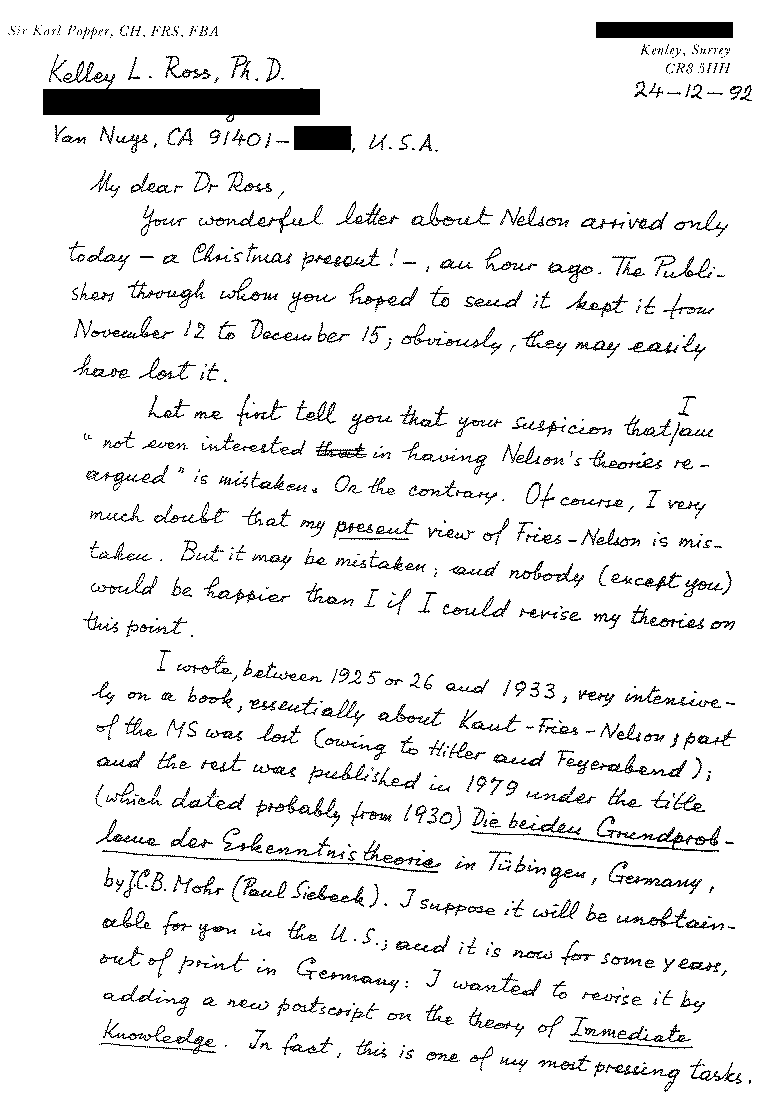 Sir Karl Popper, CH, FRS, FBA
Kenley, Surrey
CR8 5HH
24-12-92
Kelley L. Ross, Ph.D.
Van Nuys, CA 91401-      , U.S.A.
My dear Dr Ross,
Your wonderful letter about Nelson arrived only
today — a Christmas present! —, an hour ago. The Publi-
shers through whom you hoped to send it kept it from
November 12 to December 15; obviously, they may easily
have lost it.
Let me first tell you that your suspicion that I am
"not even interested that in having Nelson's theories re-
argued" is mistaken. On the contrary. Of course, I very
much doubt that my present view of Fries-Nelson is mis-
taken. But it may be mistaken; and nobody (except you)
would be happier than I if I could revise my theories on
this point.
I wrote, between 1925 or 26 and 1933, very intensive-
ly on a book, essentially about Kant-Fries-Nelson; part
of the MS was lost (owing to Hitler and Feyerabend);
and the rest was published in 1979 under the title
(which dated probably from 1930) Die beiden Grundprob-
leme der Erkenntnistheorie in Tübingen, Germany,
by J.C.B. Mohr (Paul Siebeck). I suppose it will be unobtain-
able for you in the U.S.; and it is now for some years,
out of print in Germany: I wanted to revise it by
adding a new postscript on the theory of Immediate
Knowledge. In fact, this is one of my most pressing tasks.